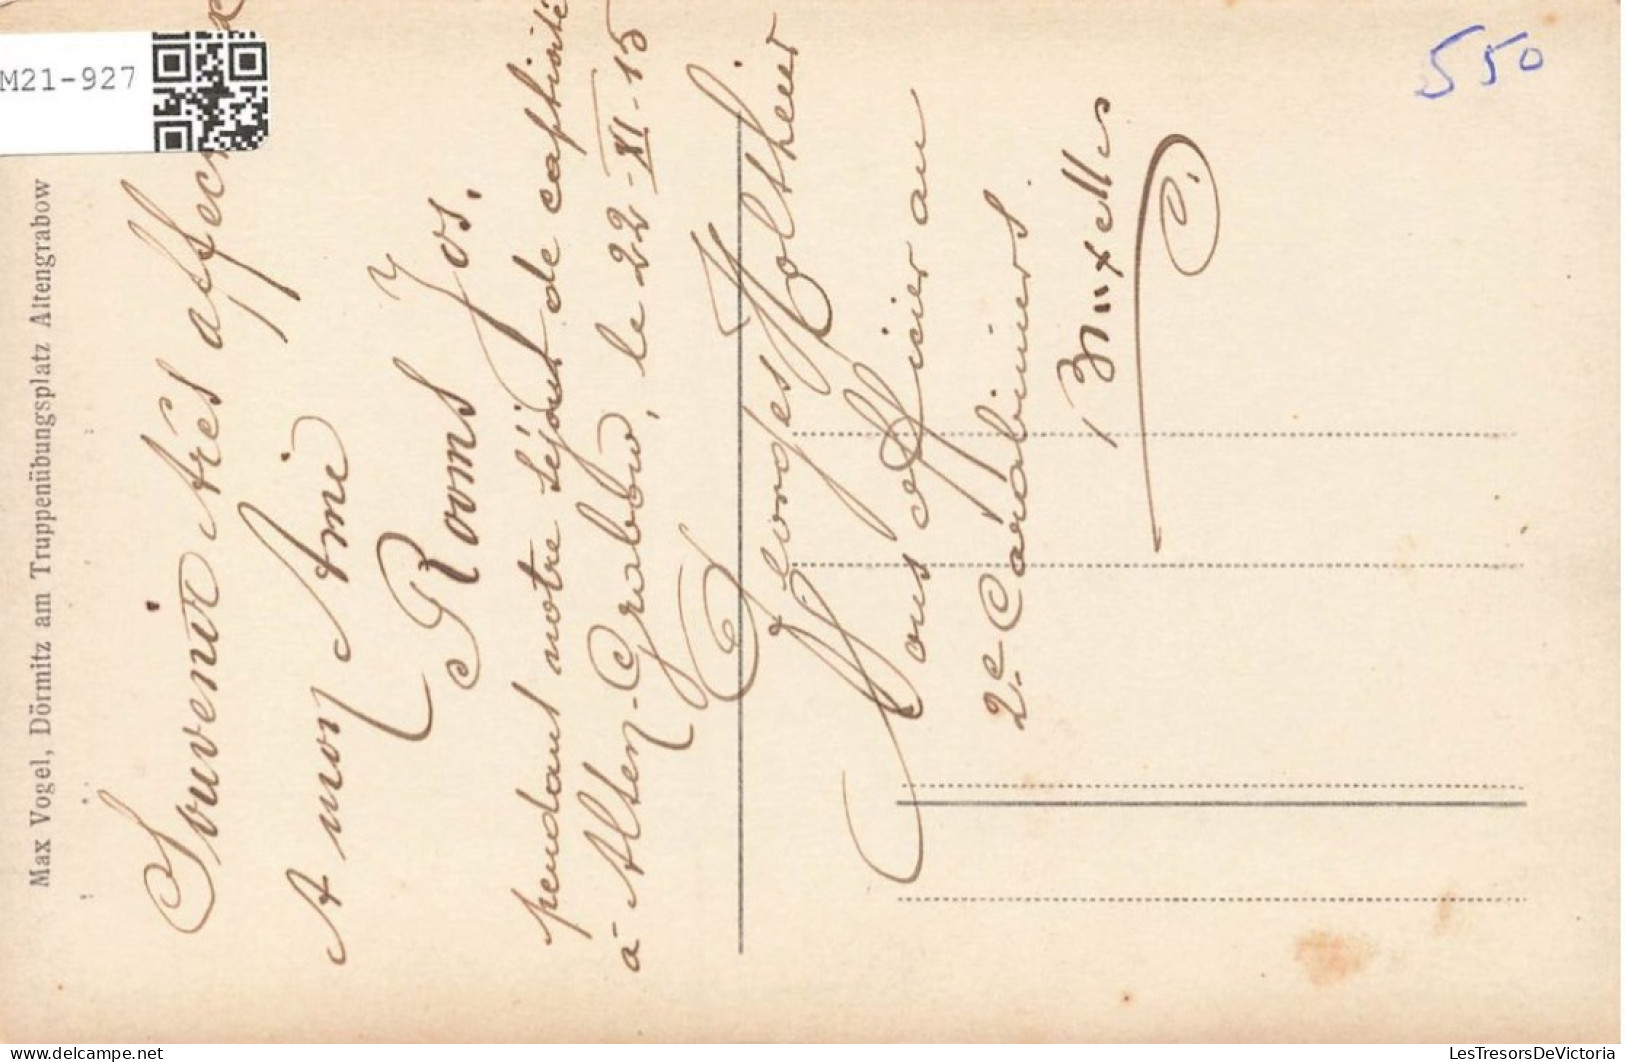 Souvenir très affec
A mon Ami
Rooms Jos.
pendant notre séjour de captivité
à Alten-Grabow, le 22-XI-15
Georges Holtheier
Sous officier au
2e Carabiniers.
Bruxelles
Max Vogel, Dörmitz am Truppenübungsplatz Altengrabow
M21-927
550
LesTresorsDeVictoria
www.delcampe.net